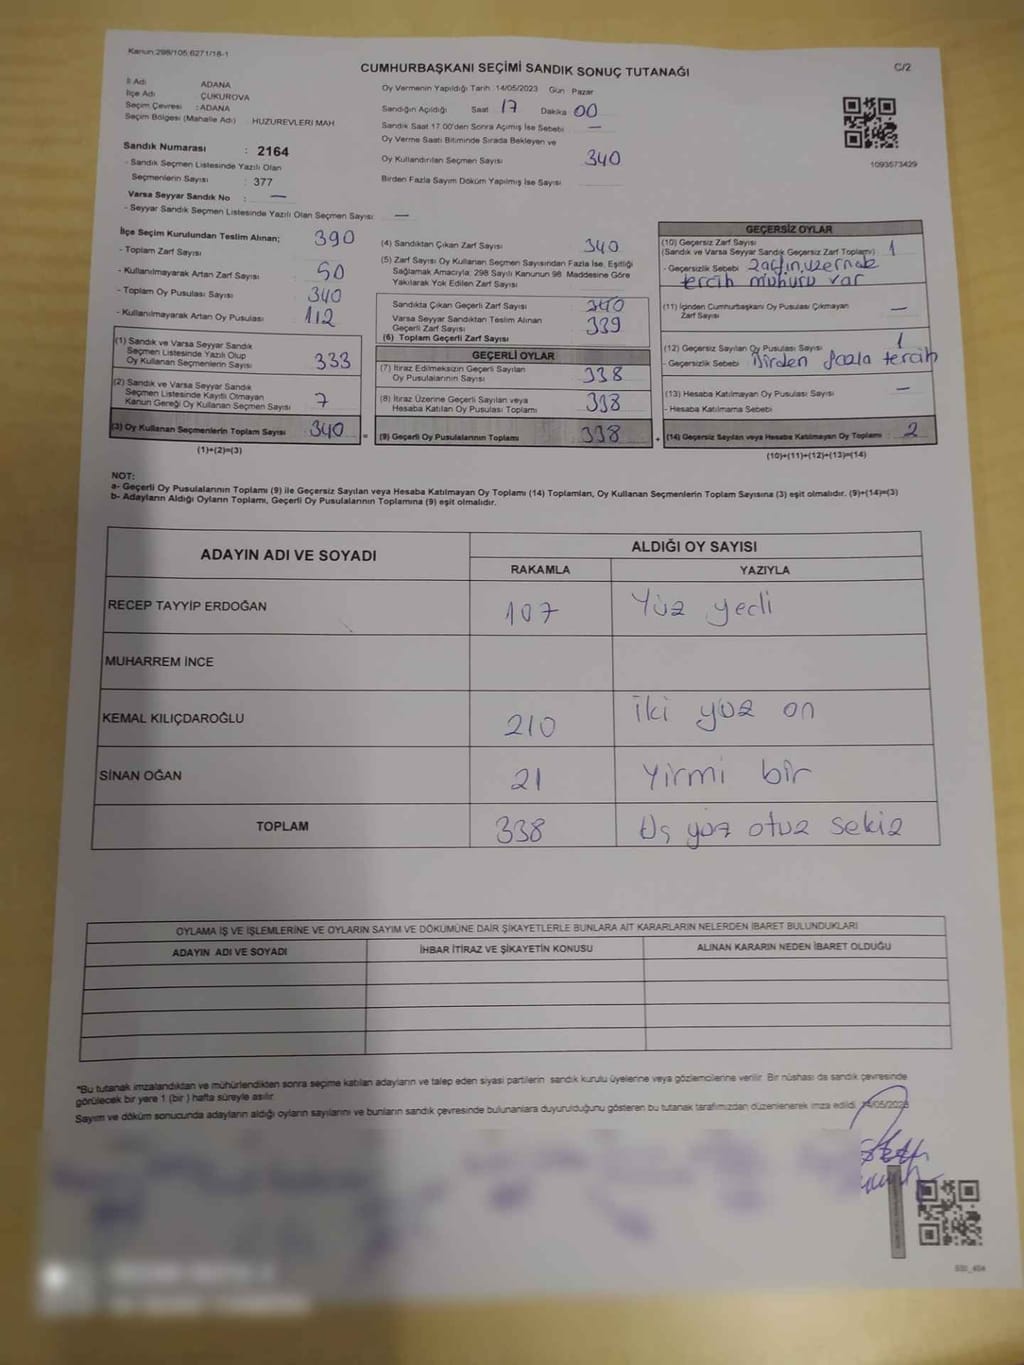 Kanun:298/105,6271/18-1
CUMHURBAŞKANI SEÇİMİ SANDIK SONUÇ TUTANAĞI
C/2
İl Adı ADANA
İlçe Adı ÇUKUROVA
Seçim Çevresi : ADANA
Seçim Bölgesi (Mahalle Adı) HUZUREVLERİ MAH
Sandık Numarası : 2164
- Sandık Seçmen Listesinde Yazılı Olan
Seçmenlerin Sayısı : 377
Varsa Seyyar Sandık No : —
- Seyyar Sandık Seçmen Listesinde Yazılı Olan Seçmen Sayısı: —
Oy Vermenin Yapıldığı Tarih :14/05/2023 Gün : Pazar
Sandığın Açıldığı Saat 17 Dakika 00
Sandık Saat 17.00'den Sonra Açımış İse Sebebi —
Oy Verme Saati Bitiminde Sırada Bekleyen ve
Oy Kullandırılan Seçmen Sayısı 340
Birden Fazla Sayım Döküm Yapılmış İse Sayısı
1093573429
İlçe Seçim Kurulundan Teslim Alınan; 390
- Toplam Zarf Sayısı
- Kullanılmayarak Artan Zarf Sayısı 50
- Toplam Oy Pusulası Sayısı 340
- Kullanılmayarak Artan Oy Pusulası 112
(1) Sandık ve Varsa Seyyar Sandık
Seçmen Listesinde Yazılı Olup
Oy Kullanan Seçmenlerin Sayısı 333
(2) Sandık ve Varsa Seyyar Sandık
Seçmen Listesinde Kayıtlı Olmayan
Kanun Gereği Oy Kullanan Seçmen Sayısı 7
(3) Oy Kullanan Seçmenlerin Toplam Sayısı 340 =
(1)+(2)=(3)
(4) Sandıktan Çıkan Zarf Sayısı 340
(5) Zarf Sayısı Oy Kullanan Seçmen Sayısından Fazla İse, Eşitliği
Sağlamak Amacıyla; 298 Sayılı Kanunun 98. Maddesine Göre
Yakılarak Yok Edilen Zarf Sayısı
Sandıkta Çıkan Geçerli Zarf Sayısı 340
Varsa Seyyar Sandıktan Teslim Alınan
Geçerli Zarf Sayısı 339
(6) Toplam Geçerli Zarf Sayısı
GEÇERLİ OYLAR
(7) İtiraz Edilmeksizin Geçerli Sayılan
Oy Pusulalarının Sayısı 338
(8) İtiraz Üzerine Geçerli Sayılan veya
Hesaba Katılan Oy Pusulası Toplamı 338
(9) Geçerli Oy Pusulalarının Toplamı 338 +
GEÇERSİZ OYLAR
(10) Geçersiz Zarf Sayısı
(Sandık ve Varsa Seyyar Sandık Geçersiz Zarf Toplamı) 1
- Geçersizlik Sebebi zarfın üzerinde
tercih mühürü var
(11) İçinden Cumhurbaşkanı Oy Pusulası Çıkmayan
Zarf Sayısı —
(12) Geçersiz Sayılan Oy Pusulası Sayısı 1
- Geçersizlik Sebebi Birden fazla tercih
(13) Hesaba Katılmayan Oy Pusulası Sayısı —
- Hesaba Katılmama Sebebi
(14) Geçersiz Sayılan veya Hesaba Katılmayan Oy Toplamı : 2
(10)+(11)+(12)+(13)=(14)
NOT:
a- Geçerli Oy Pusulalarının Toplamı (9) ile Geçersiz Sayılan veya Hesaba Katılmayan Oy Toplamı (14) Toplamları, Oy Kullanan Seçmenlerin Toplam Sayısına (3) eşit olmalıdır. (9)+(14)=(3)
b- Adayların Aldığı Oyların Toplamı, Geçerli Oy Pusulalarının Toplamına (9) eşit olmalıdır.
ADAYIN ADI VE SOYADI ALDIĞI OY SAYISI
RAKAMLA YAZIYLA
RECEP TAYYİP ERDOĞAN 107 Yüz yedi
MUHARREM İNCE
KEMAL KILIÇDAROĞLU 210 iki yüz on
SİNAN OĞAN 21 Yirmi bir
TOPLAM 338 Üç yüz otuz sekiz
OYLAMA İŞ VE İŞLEMLERİNE VE OYLARIN SAYIM VE DÖKÜMÜNE DAİR ŞİKAYETLERLE BUNLARA AİT KARARLARIN NELERDEN İBARET BULUNDUKLARI
ADAYIN ADI VE SOYADI İHBAR İTİRAZ VE ŞİKAYETİN KONUSU ALINAN KARARIN NEDEN İBARET OLDUĞU
"Bu tutanak imzalandıktan ve mühürlendikten sonra seçime katılan adayların ve talep eden siyasi partilerin sandık kurulu üyelerine veya gözlemcilerine verilir. Bir nüshası da sandık çevresinde
görülecek bir yere 1 (bir ) hafta süreyle asılır.
Sayım ve döküm sonucunda adayların aldığı oyların sayılarını ve bunların sandık çevresinde bulunanlara duyurulduğunu gösteren bu tutanak tarafımızdan düzenlenerek imza edildi. 14/05/2023